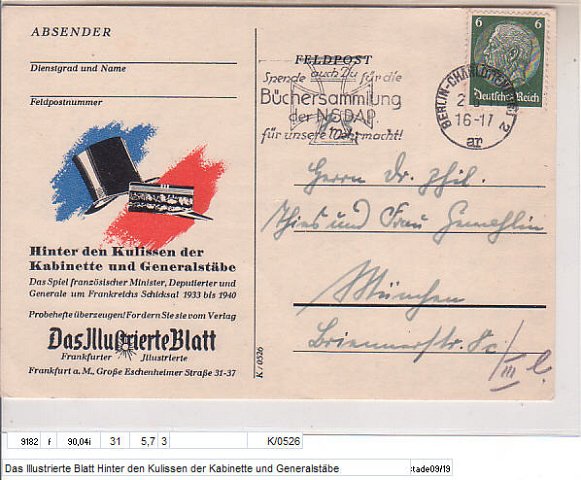 ABSENDER
Dienstgrad und Name
Feldpostnummer
Hinter den Kulissen der
Kabinette und Generalstäbe
Das Spiel französischer Minister, Deputierter und
Generale um Frankreichs Schicksal 1933 bis 1940
Probehefte überzeugen! Fordern Sie sie vom Verlag
Das Illustrierte Blatt
Frankfurter Illustrierte
Frankfurt a. M., Große Eschenheimer Straße 31-37
K / 0526
FELDPOST
Spende auch Du für die
Büchersammlung
der NSDAP
für unsere Wehrmacht!
BERLIN-CHARLOTTENBURG 2
16-17
ar
6 6
Deutsches Reich
Herrn Dr. phil.
Thies und Frau Gemahlin
München
Briennerstr. 8c/
III l.
9182 f 90,04i 31 5,7 3 K/0526
Das Illustrierte Blatt Hinter den Kulissen der Kabinette und Generalstäbe
tade09/19